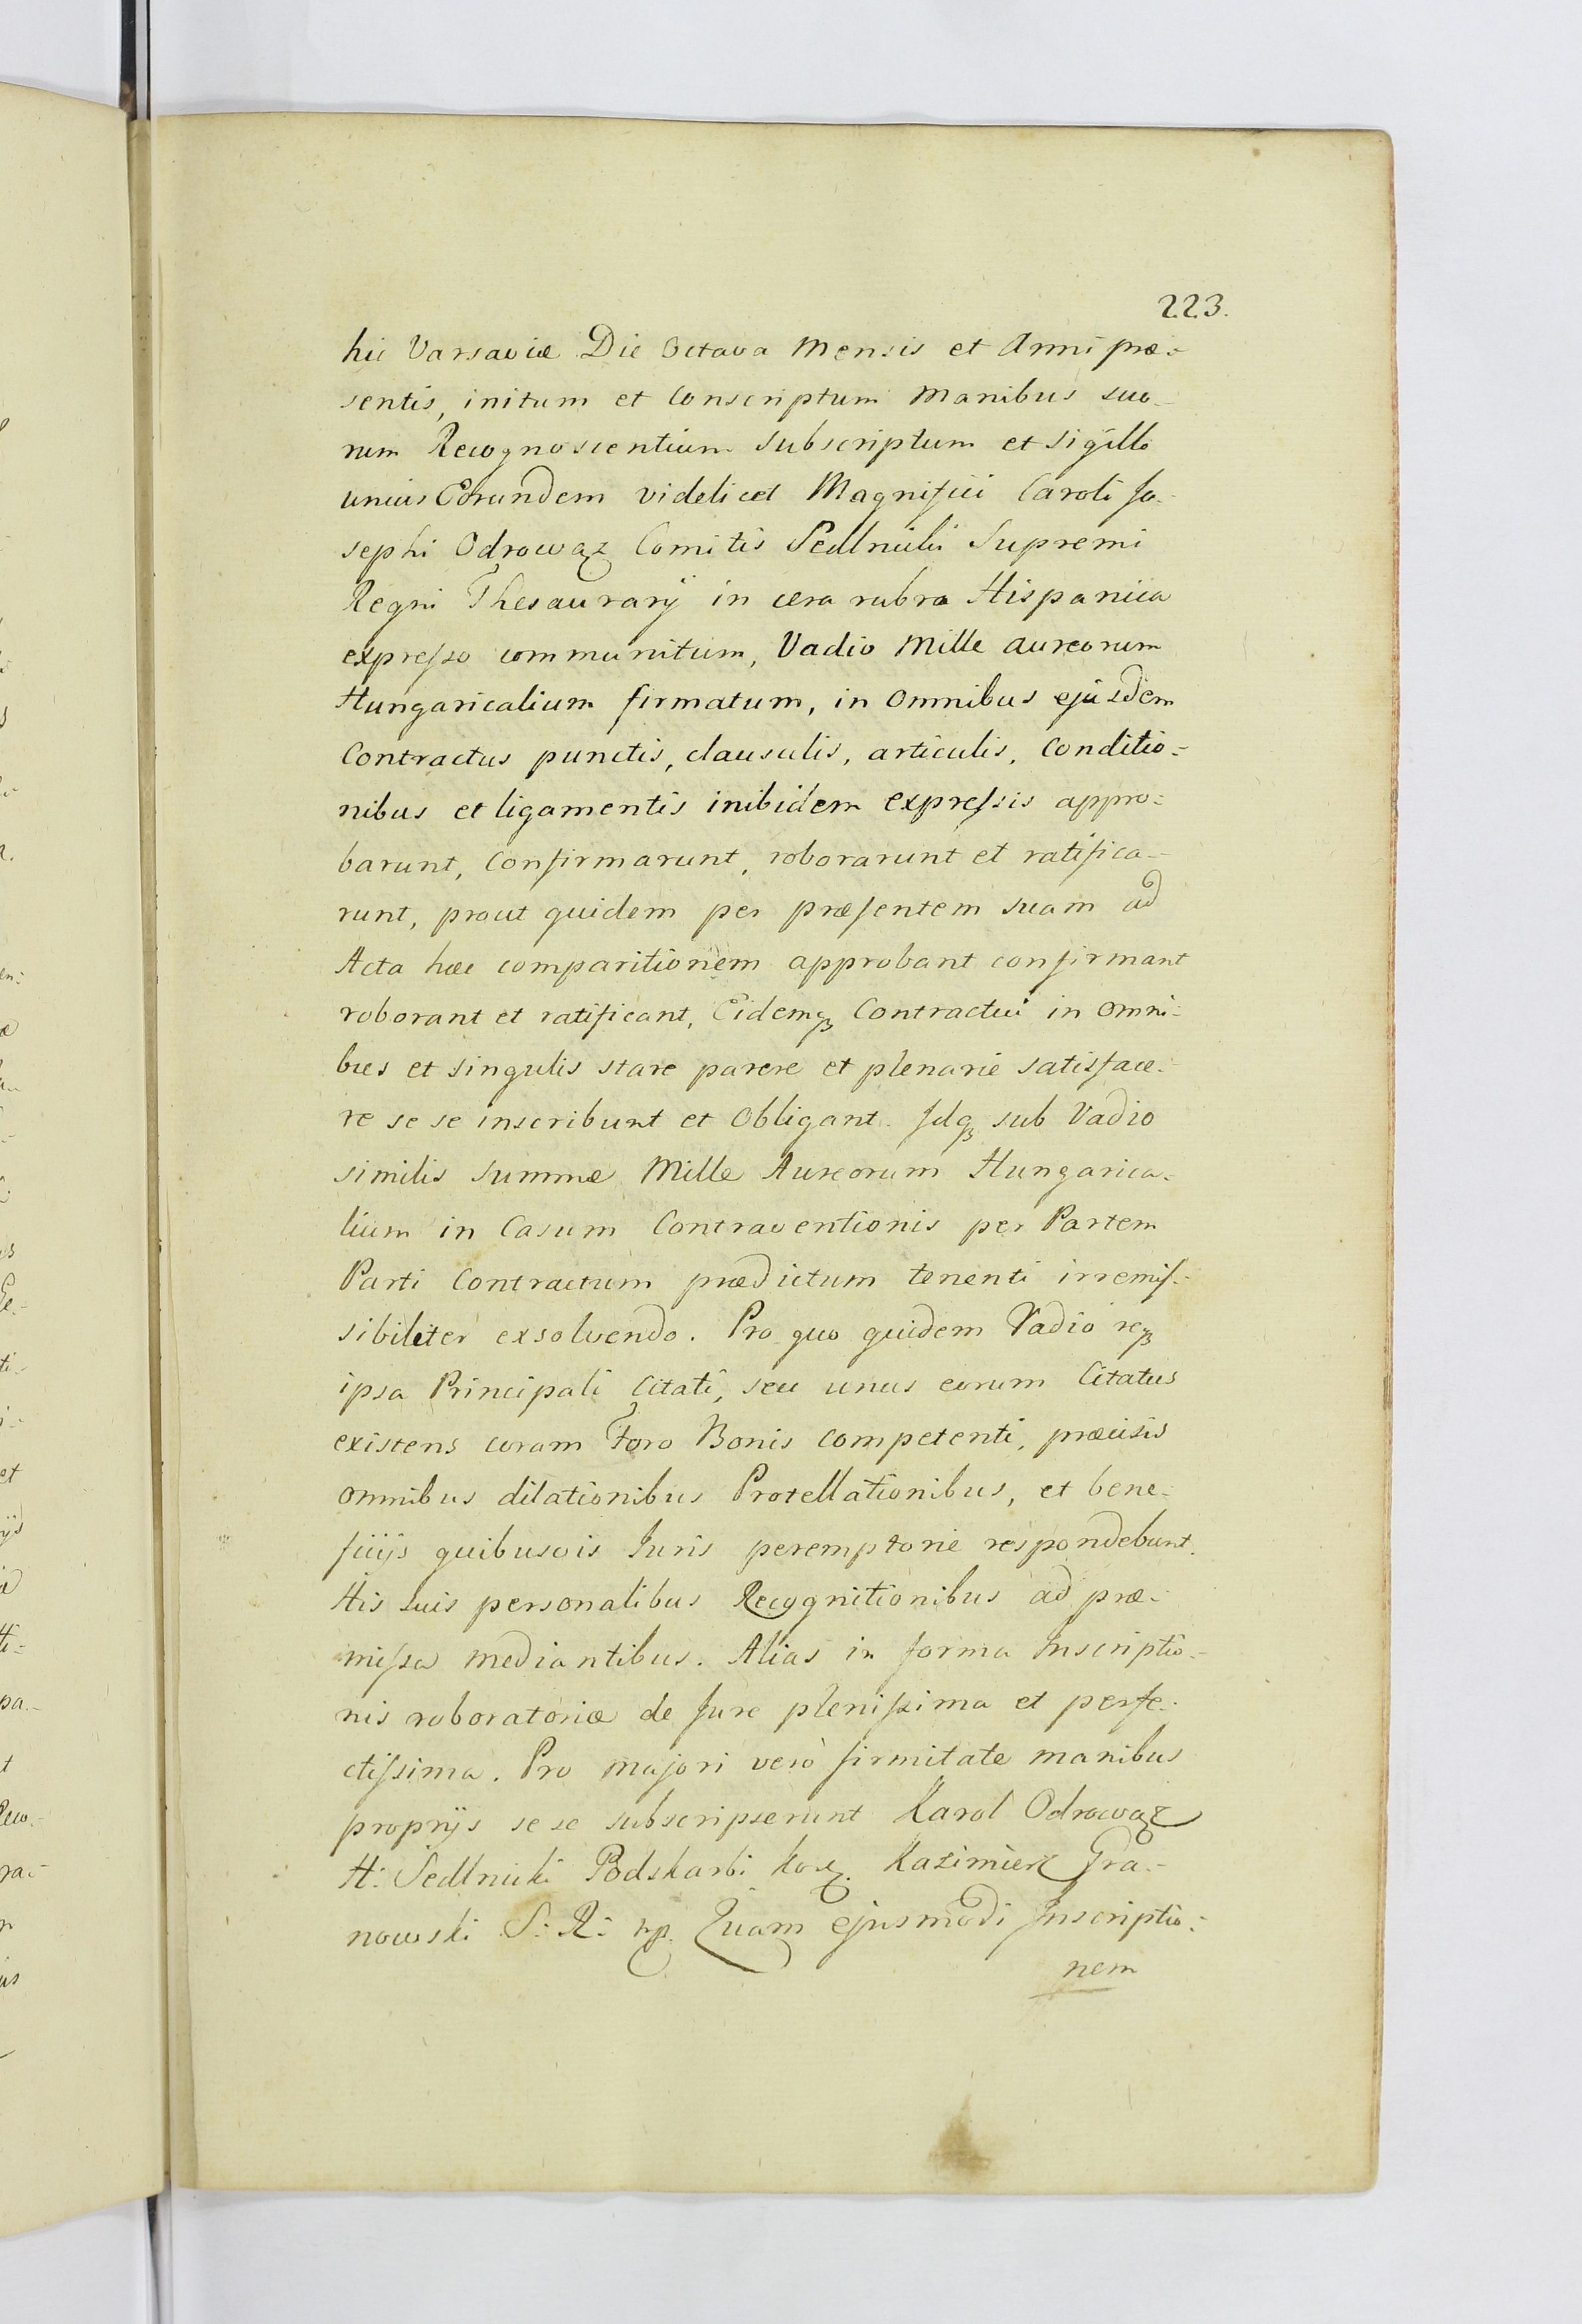 223.
hic Varsaviæ Die Octava Mensis et Anni præ=
sentis, initum et Conscriptum Manibus suo=
rum Recognoscentium Subscriptum et sigillo
unius Eorundem videlicet Magnifici Caroli Jo=
sephi Odrowąz Comitis Sedlnicki Supremi
Regni Thesaurarij in cera rubra Hispanica
expresso communitum, Vadio Mille aureorum
Hungaricalium firmatum, in Omnibus ejusdem
Contractus punctis, clausulis, articulis, Conditio=
nibus et ligamentis inibidem expressis appro=
barunt, Confirmarunt, roborarunt et ratifica=
runt, prout quidem per præsentem suam ad
Acta hæc comparitionem approbant confirmant
roborant et ratificant, Eidemq Contractui in Omni=
bus et singulis stare parere et plenarie satisface=
re se se inscribunt et Obligant. Idq sub Vadio
similis Summæ Mille Aureorum Hungarica=
lium in Casum Contraventionis per Partem
Parti Contractum prædictum tenenti irremis=
sibiliter exsolvendo. Pro quo quidem Vadio req
ipsa Principali Citati, seu unus eorum Citatus
existens coram Foro Bonis competenti, præcisis
Omnibus dilationibus Protellationibus, et bene=
ficijs quibusvis Juris peremptorie respondebunt.
His suis personalibus Recognitionibus ad præ=
missa mediantibus. Alias in forma Inscriptio=
nis roboratoriæ de Jure plenissima et perfe=
ctissima. Pro majori verò firmitate manibus
proprijs se se subscripserunt Karol Odrowąz
H: Sedlnicki Podskarbi Kor. Kazimierz Gra=
nowski S: R: mp. Quam ejusmodi Inscriptio=
nem